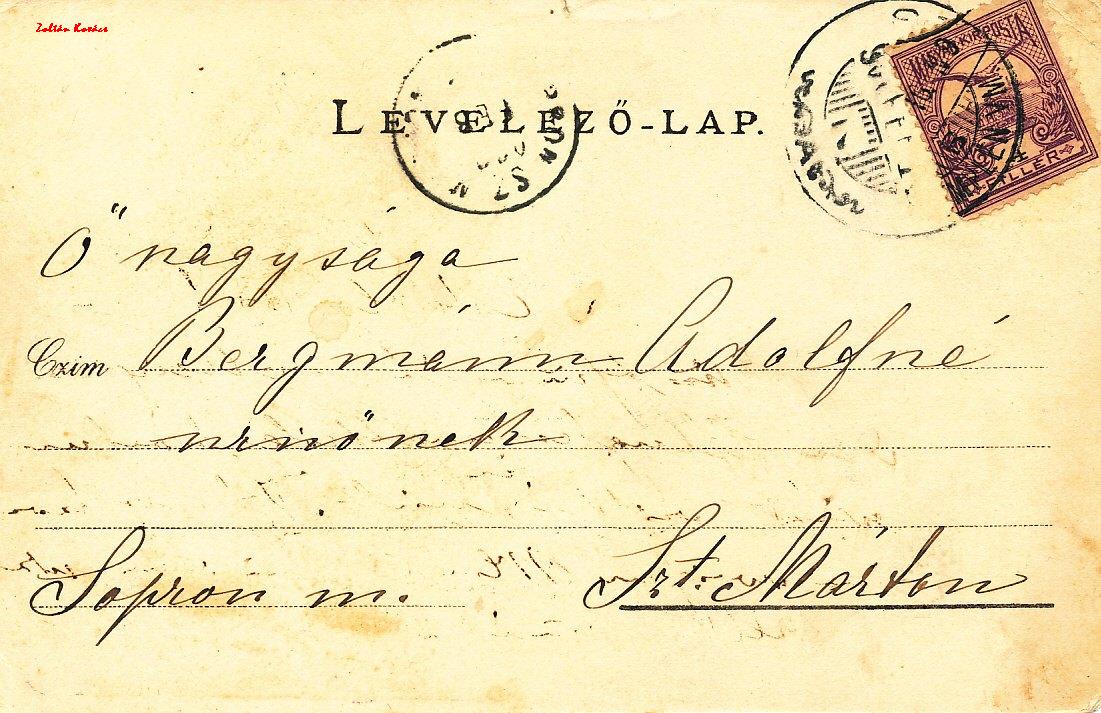 Zoltán Kovács
LEVELEZŐ-LAP.
MAGY. KIR. POSTA
FILLÉR
Ő nagysága
Czim Bergmánn Adolfné
urnőnek
Sopron m. Szt. Márton